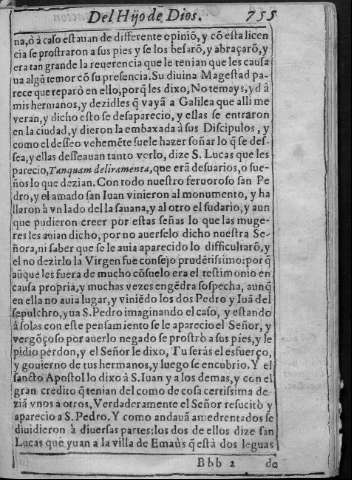 Del Hijo de Dios. 755
na, ò à caso estauan de differente opiniõ, y cõ esta licen
cia se prostraron a sus pies y se los besarõ, y abraçarõ, y
era tan grande la reuerencia que le tenian que les causa
ua algũ temor cõ su presencia. Su diuina Magestad pa-
rece que reparò en ello, porq̃ les dixo, No temays, y d à
mis hermanos, y dezidles q̃ vayã a Galilea que alli me
veran, y dicho esto se desaparecio, y ellas se entraron
en la ciudad, y dieron la embaxada à sus Discipulos, y
como el desseo vehemẽte suele hazer soñar lo q̃ se des-
sea, y ellas desseauan tanto verlo, dize S. Lucas que les
parecio, Tanquam deliramenta, que erã desuarios, o sue-
ños lo que dezian. Con todo nuestro feruoroso san Pe
dro, y el amado san Iuan vinieron al monumento, y ha
llaron à vn lado del la sauana, y al otro el sudario, y aun
que pudieron creer por estas señas lo que las muge-
res les auian dicho, por no auerselo dicho nuestra Se-
ñora, ni saber que se le auia aparecido lo difficultarõ, y
el no dezirlo la Virgen fue consejo prudẽtissimo: por q̃
aũque les fuera de mucho cõsuelo era el testimonio en
causa propria, y muchas vezes engẽdra sospecha, aunq̃
en ella no auia lugar, y viniẽdo los dos Pedro y Iuã del
sepulchro, yua S. Pedro imaginando el caso, y estando
à solas con este pensamiento se le aparecio el Señor, y
vergõçoso por auerlo negado se prostrò a sus pies, y le
pidio perdon, y el Señor le dixo, Tu seràs el esfuerço,
y gouierno de tus hermanos, y luego se encubrio. Y el
sancto Apostol lo dixo à S. Iuan y a los demas, y con el
gran credito q̃ tenian del como de cosa certissima de
ziã vnos a otros, Verdaderamente el Señor resucitò y
aparecio a S. Pedro. Y como andauã amedrentados se
diuidieron à diuersas partes: los dos de ellos dize san
Lucas que yuan a la villa de Emaùs q̃ està dos leguas
Bbb 2 de